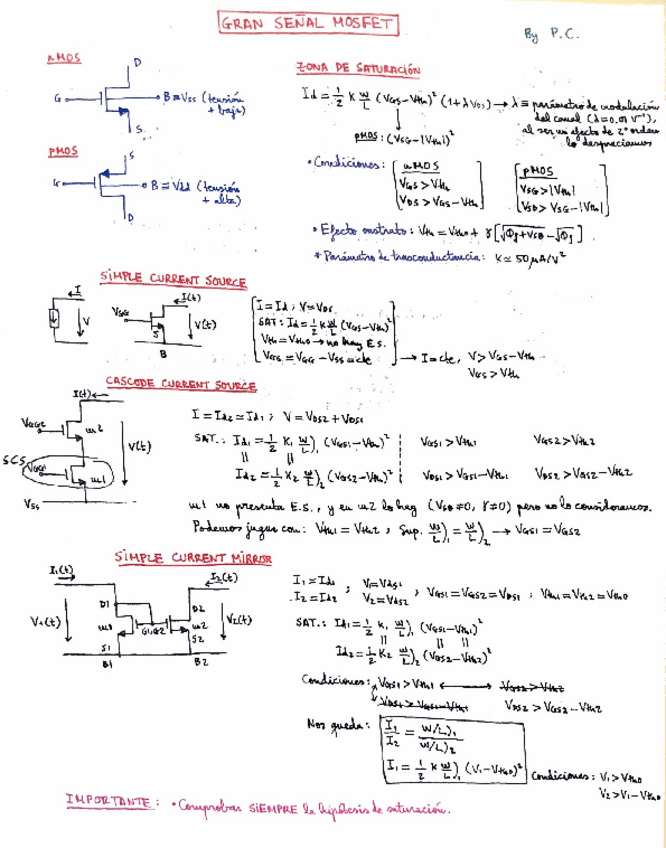 GRAN SEÑAL MOSFET
By P.C.
nMOS
D
G
B≡Vss (tensión + baja)
S
pMOS
S
G
B≡Vdd (tensión + alta)
D
ZONA DE SATURACIÓN
Id = 1/2 K W/L (VGS-Vth)² (1+λVDS) → λ ≡ parámetro de modulación
del canal (λ=0.01 V⁻¹),
al ser un efecto de 2º orden
lo despreciamos
pMOS: (VSG-|Vth|)²
• Condiciones:
nMOS
VGS > Vth
VDS > VGS-Vth
pMOS
VSG > |Vth|
VSD > VSG-|Vth|
• Efecto sustrato: Vth = Vth0 + γ[√ΦJ+VSB - √ΦJ]
* Parámetro de trasconductancia: K ≃ 50 μA/V²
SIMPLE CURRENT SOURCE
I
V
I(t)
VGG
V(t)
S
B
I = Id ; V = VDS
SAT: Id = 1/2 K W/L (VGS-Vth)²
Vth = Vth0 → no hay E.S.
VGS = VGG - VSS = cte
→ I = cte, V > VGS-Vth
VGS > Vth
CASCODE CURRENT SOURCE
I(t)
VGG2
m2
V(t)
SCS
VGG1
m1
Vss
I = Id2 = Id1 ; V = VDS2 + VDS1
SAT.: Id1 = 1/2 K1 W/L)1 (VGS1-Vth)²
Id2 = 1/2 K2 W/L)2 (VGS2-Vth)²
VGS1 > Vth1 VGS2 > Vth2
VDS1 > VGS1-Vth1 VDS2 > VGS2-Vth2
m1 no presenta E.S., y en m2 lo hay (VSB≠0, γ≠0) pero no lo consideramos.
Podemos jugar con: Vth1 = Vth2, Sup. W/L)1 = W/L)2 → VGS1 = VGS2
SIMPLE CURRENT MIRROR
I1(t)
I2(t)
D1
D2
V1(t)
m1
G1,G2
m2
V2(t)
S1
S2
B1
B2
I1 = Id1 ; V1 = VdS1
I2 = Id2 V2 = VdS2 ; VGS1 = VGS2 = VDS1 ; Vth1 = Vth2 = Vth0
SAT.: Id1 = 1/2 K1 W/L)1 (VGS1-Vth1)²
Id2 = 1/2 K2 W/L)2 (VGS2-Vth2)²
Condiciones: VGS1 > Vth1 ⟷ VGS2 > Vth2
VDS1 > VGS1-Vth1 VDS2 > VGS2-Vth2
Nos queda:
I1/I2 = W/L)1 / W/L)2
I1 = 1/2 K W/L)1 (V1-Vth0)²
Condiciones: V1 > Vth0
V2 > V1-Vth0
IMPORTANTE: • Comprobar SIEMPRE la hipótesis de saturación.